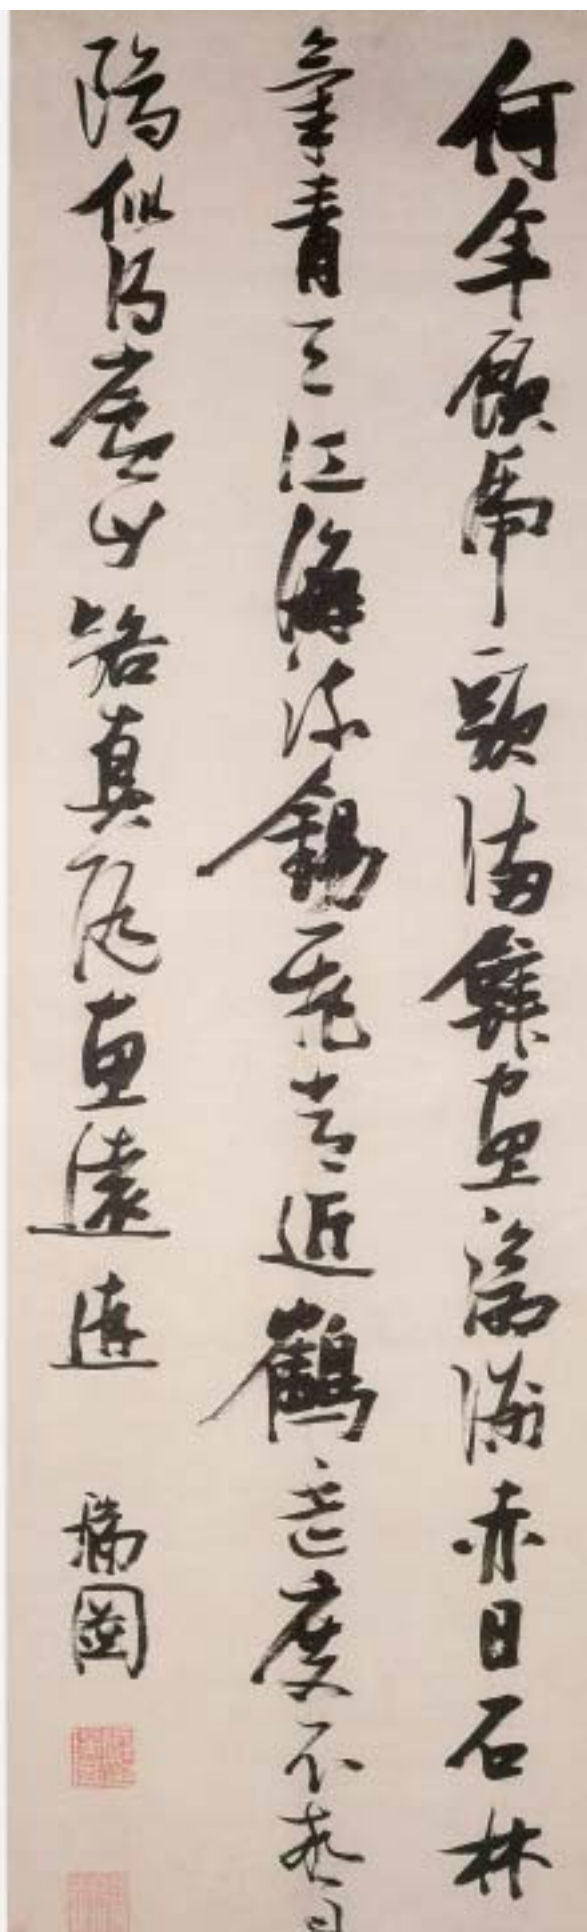 何年顧虎頭滿壁畫滄洲赤日石林
氣青天江海流錫飛常近鶴杯度不驚
鷗似得廬山路真隨惠遠遊 瑞圖